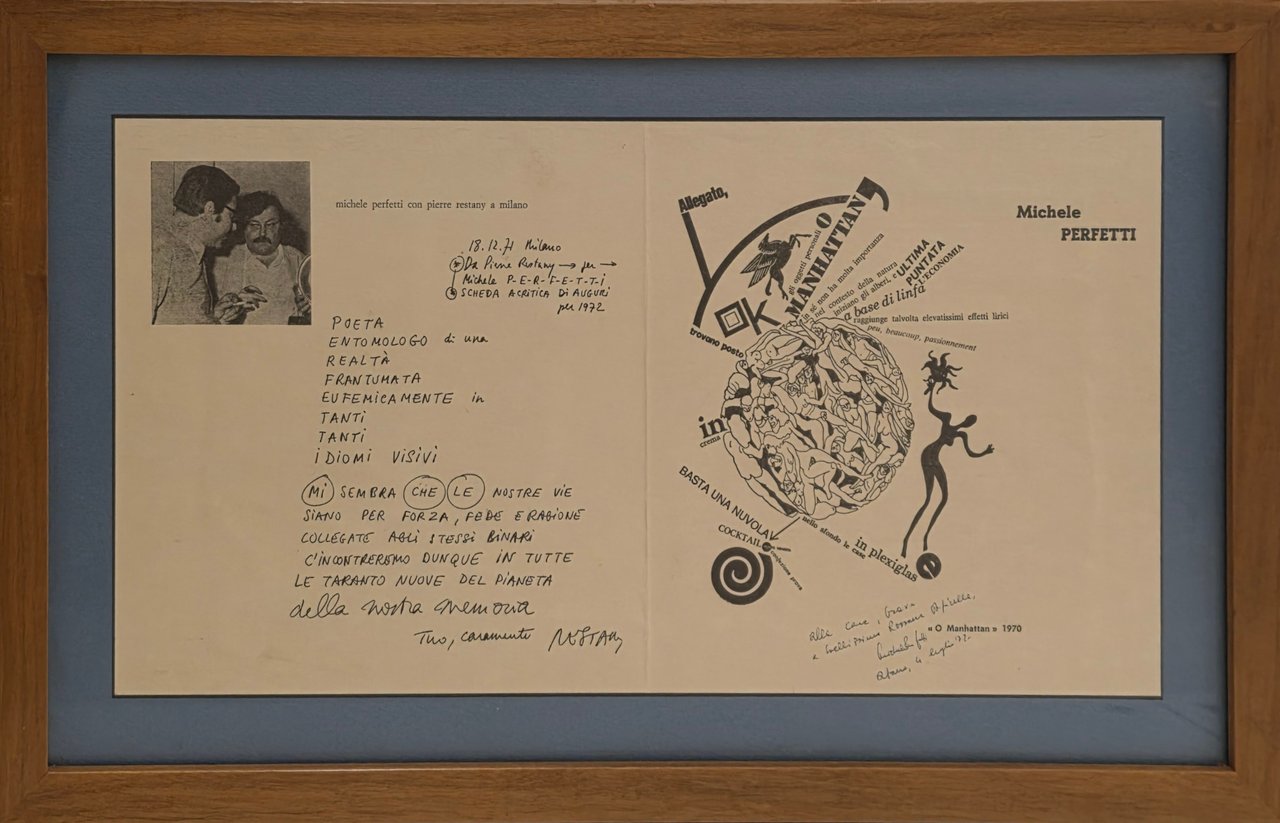 michele perfetti con pierre restany a milano
18.12.71 Milano
Da Pierre Restany → per →
Michele P-E-R-F-E-T-T-I
SCHEDA ACRITICA DI AUGURI
per 1972
POETA
ENTOMOLOGO di una
REALTÀ
FRANTUMATA
EUFEMICAMENTE in
TANTI
TANTI
IDIOMI VISIVI
MI SEMBRA CHE LE NOSTRE VIE
SIANO PER FORZA, FEDE E RAGIONE
COLLEGATE AGLI STESSI BINARI
C'INCONTREREMO DUNQUE IN TUTTE
LE TARANTO NUOVE DEL PIANETA
della nostra memoria
Tuo, caramente RESTANY
Michele
PERFETTI
Allegato,
OK
gli oggetti personali
O MANHATTAN
in sé non ha molta importanza
nel contesto della natura
iniziano gli alberi, e
ULTIMA
PUNTATA
L'ECONOMIA
a base di linfa
raggiunge talvolta elevatissimi effetti lirici
peu, beaucoup, passionnement
trovano posto
in
crema
BASTA UNA NUVOLA
COCKTAIL
nello sfondo le case
in plexiglas
e
« O Manhattan » 1970
alla cara, brava
e bellissima Rossana